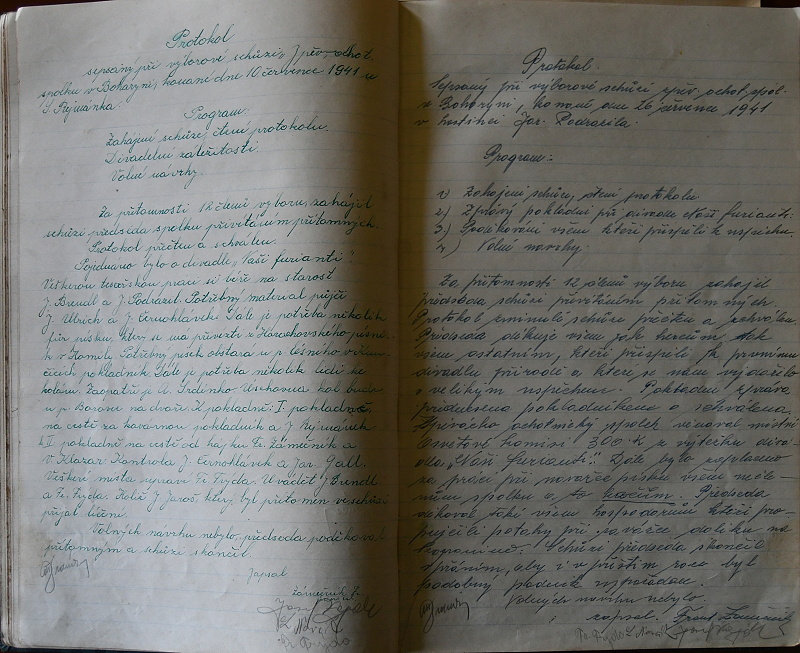 Protokol
sepsaný při výborové schůzi „Zpěv. ochot.
spolku v Boharyni, konané dne 10 července 1941 u
S. Rejmánka.
Program:
Zahájení schůze, čtení protokolu.
Divadelní záležitosti.
Volné návrhy.
Za přítomnosti 12 členů výboru, zahájil
schůzi předseda spolku přivítáním přítomných.
Protokol přečten a schválen.
Pojednáno bylo o divadle „Naši furianti“.
Veškerou tesařskou práci si béře na starost
J. Brendl a J. Podrazil. Potřebný materiál půjčí
J. Ulrich a J. Černohlávek. Dále je potřeba několik
fůr písku, který se má přivézti z Harachovského písní-
Potřebný písek obstará u p. lesního
pokladník. Dále je potřeba několik lidí ke
kolům. Zaopatří je A. Hrdinko. Úschovna kol bude
u p. na dvoře. 2 pokladně: I. pokladna
na cestě za kavárnou pokladník a J. Rejmánek
II pokladně na cestě od hájku Fr. Zámečník a
V. Klazar. Kontrola J. Černohlávek a Jar. Gall.
Veškerá místa upraví Fr. Fryda. Uváděčí J. Brendl
a Fr. Fryda. Holič J. Jaroš, který byl přítomen ve schůzi
přijal líčení.
Volných návrhů nebylo, předseda poděkoval
přítomným a schůzi skončil.
Zapsal
Zámečník Fr.
Fr. Fryda
Protokol.
Sepsaný při výborové schůzi zpěv. ochot. spol-
v Boharyni, konané dne 26 července 1941
v hostinci Jar. Podrazila.
Program:
1) Zahájení schůze, čtení protokolu
2.) Zprávy pokladní při divadle Naši furianti.
3.) Poděkování všem kteří přispěli k úspěchu.
4.) Volné návrhy.
Za přítomnosti 12 členů výboru zahájil
předseda schůzi přivítáním přítomných.
Protokol z minulé schůze přečten a schválen.
Předseda děkuje všem jak hercům tak
všem ostatním, kteří přispěli k prvnímu
divadlu v přírodě a, které se nám vydařilo
s velikým úspěchem. Pokladní zpráva
přednesena pokladníkem a schválena.
Zpěvácko ochotnický spolek věnoval místní
Osvětové komisi 300 K z výtěžku diva-
dla „Naši furianti“. Dále bylo zaplaceno
za práci při navážce písku všem nečle-
nům spolku a to Předseda
děkoval také všem hospodářům kteří pro-
půjčili potahy při zavážce dolíku na
Schůzi předseda skončil
s přáním, aby i v příštím roce byl
podobný podnik uspořádán.
Volných návrhů nebylo.
zapsal. Frant. Zámečník
Fr. Fryda